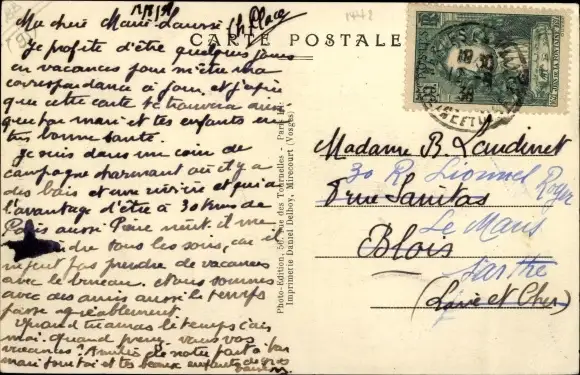 12/8/38
Ma chère Marie-Laurence
Je profite d'être quelques jours
en vacances pour mettre ma
correspondance à jour, et j'espère
que cette carte te trouvera ainsi
que ton mari et tes enfants en
très bonne santé.
Je suis dans un coin de
campagne charmant où il y a
des bois et une rivière et qui a
l'avantage d'être à 30 kms de
Paris aussi
tous les soirs, car il
ne peut pas prendre de vacances
avec le bureau. Nous sommes
avec des amis aussi le temps
passe agréablement.
Quand tu auras le temps écris
moi. Quand prenez vous vos
vacances? Amitiés de notre part à ton
mari pour toi et tes beaux enfants de gros
baisers
CARTE POSTALE
1442
Photo-Edition, 56, rue des Tournelles - Paris
Imprimerie Daniel Delboy, Mirecourt (Vosges)
Madame B. Laudinet
30 R. Lionnel Royer
8 rue Sanitas
Le Mans
Blois
Sarthe
(Loir et Cher)